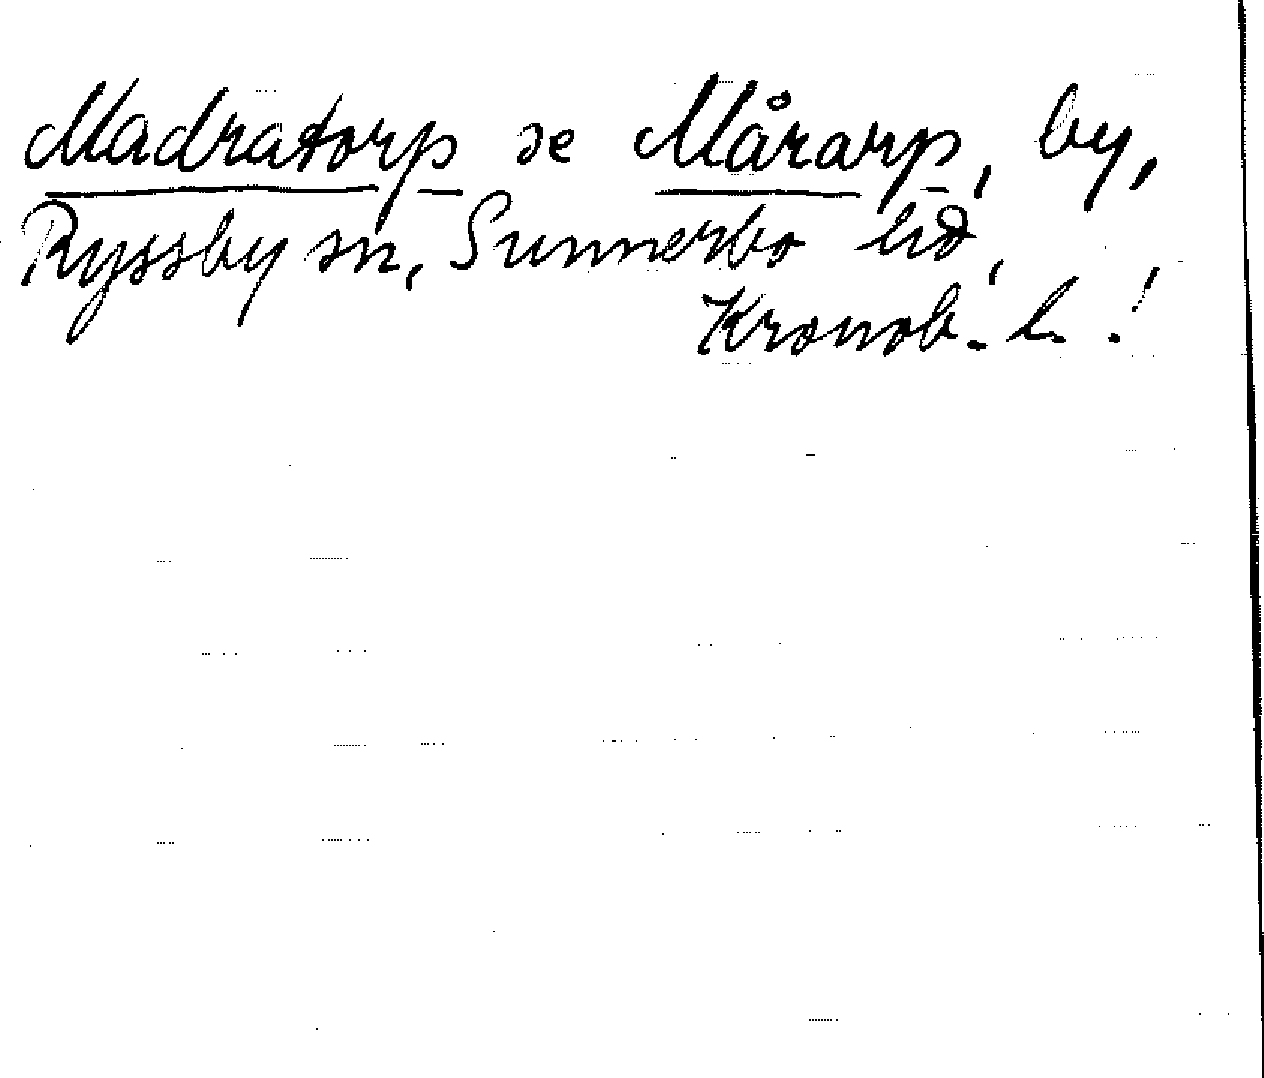 Madratorp se Mårarp, by,
Ryssby sn, Sunnerbo hd,
Kronob. l.!